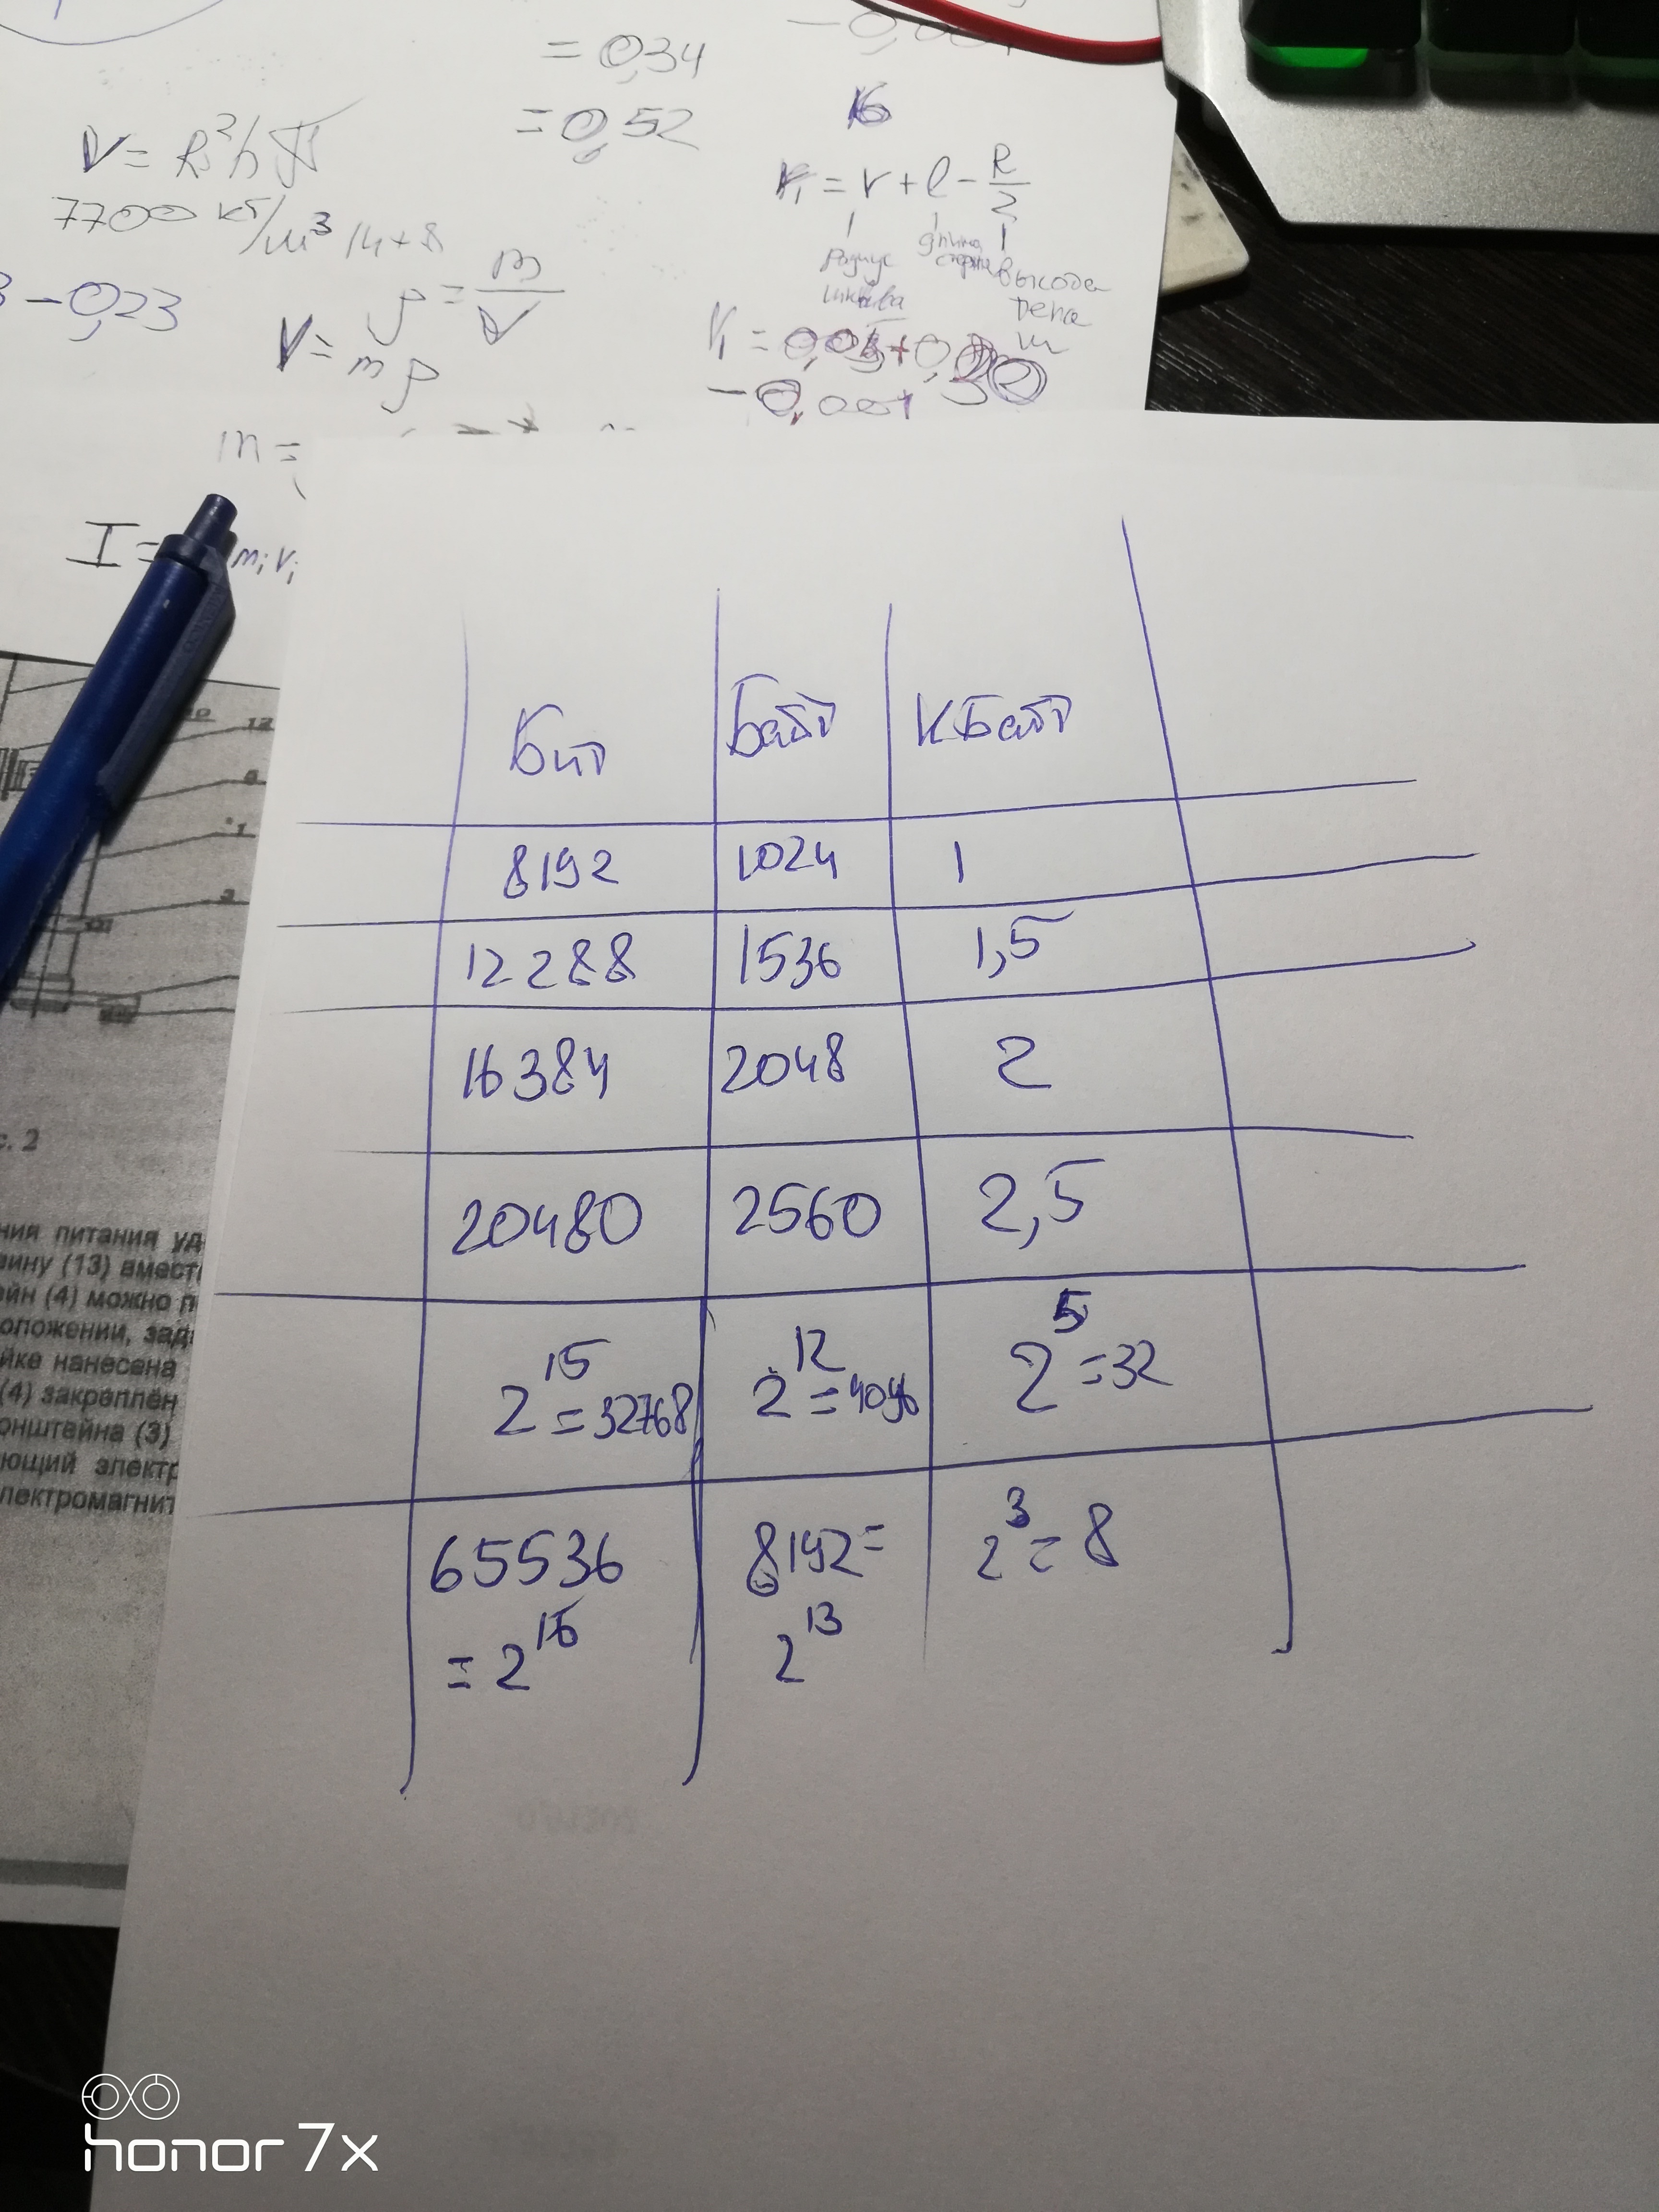 = 0,34
= 0,52
16
V = R²hπ
7700 кг/м³ 14+8
r₁ = r + l - R/2
радиус
шкива
длина
- 0,23
ρ = m/V
V = mρ
- 0,001
m =
I = mᵢ
Бит Байт КБайт
8192 1024 1
12288 1536 1,5
16384 2048 2
20480 2560 2,5
2¹⁵ = 32768 2¹² = 4096 2⁵ = 32
65536 8192 = 2³ = 8
= 2¹⁶ 2¹³
12
с. 2
ния питания уд
вину (13) вмест
йн (4) можно п
оложении, зад
йке нанесена
(4) закреплён
онштейна (3)
ющий электр
лектромагнит
honor 7x